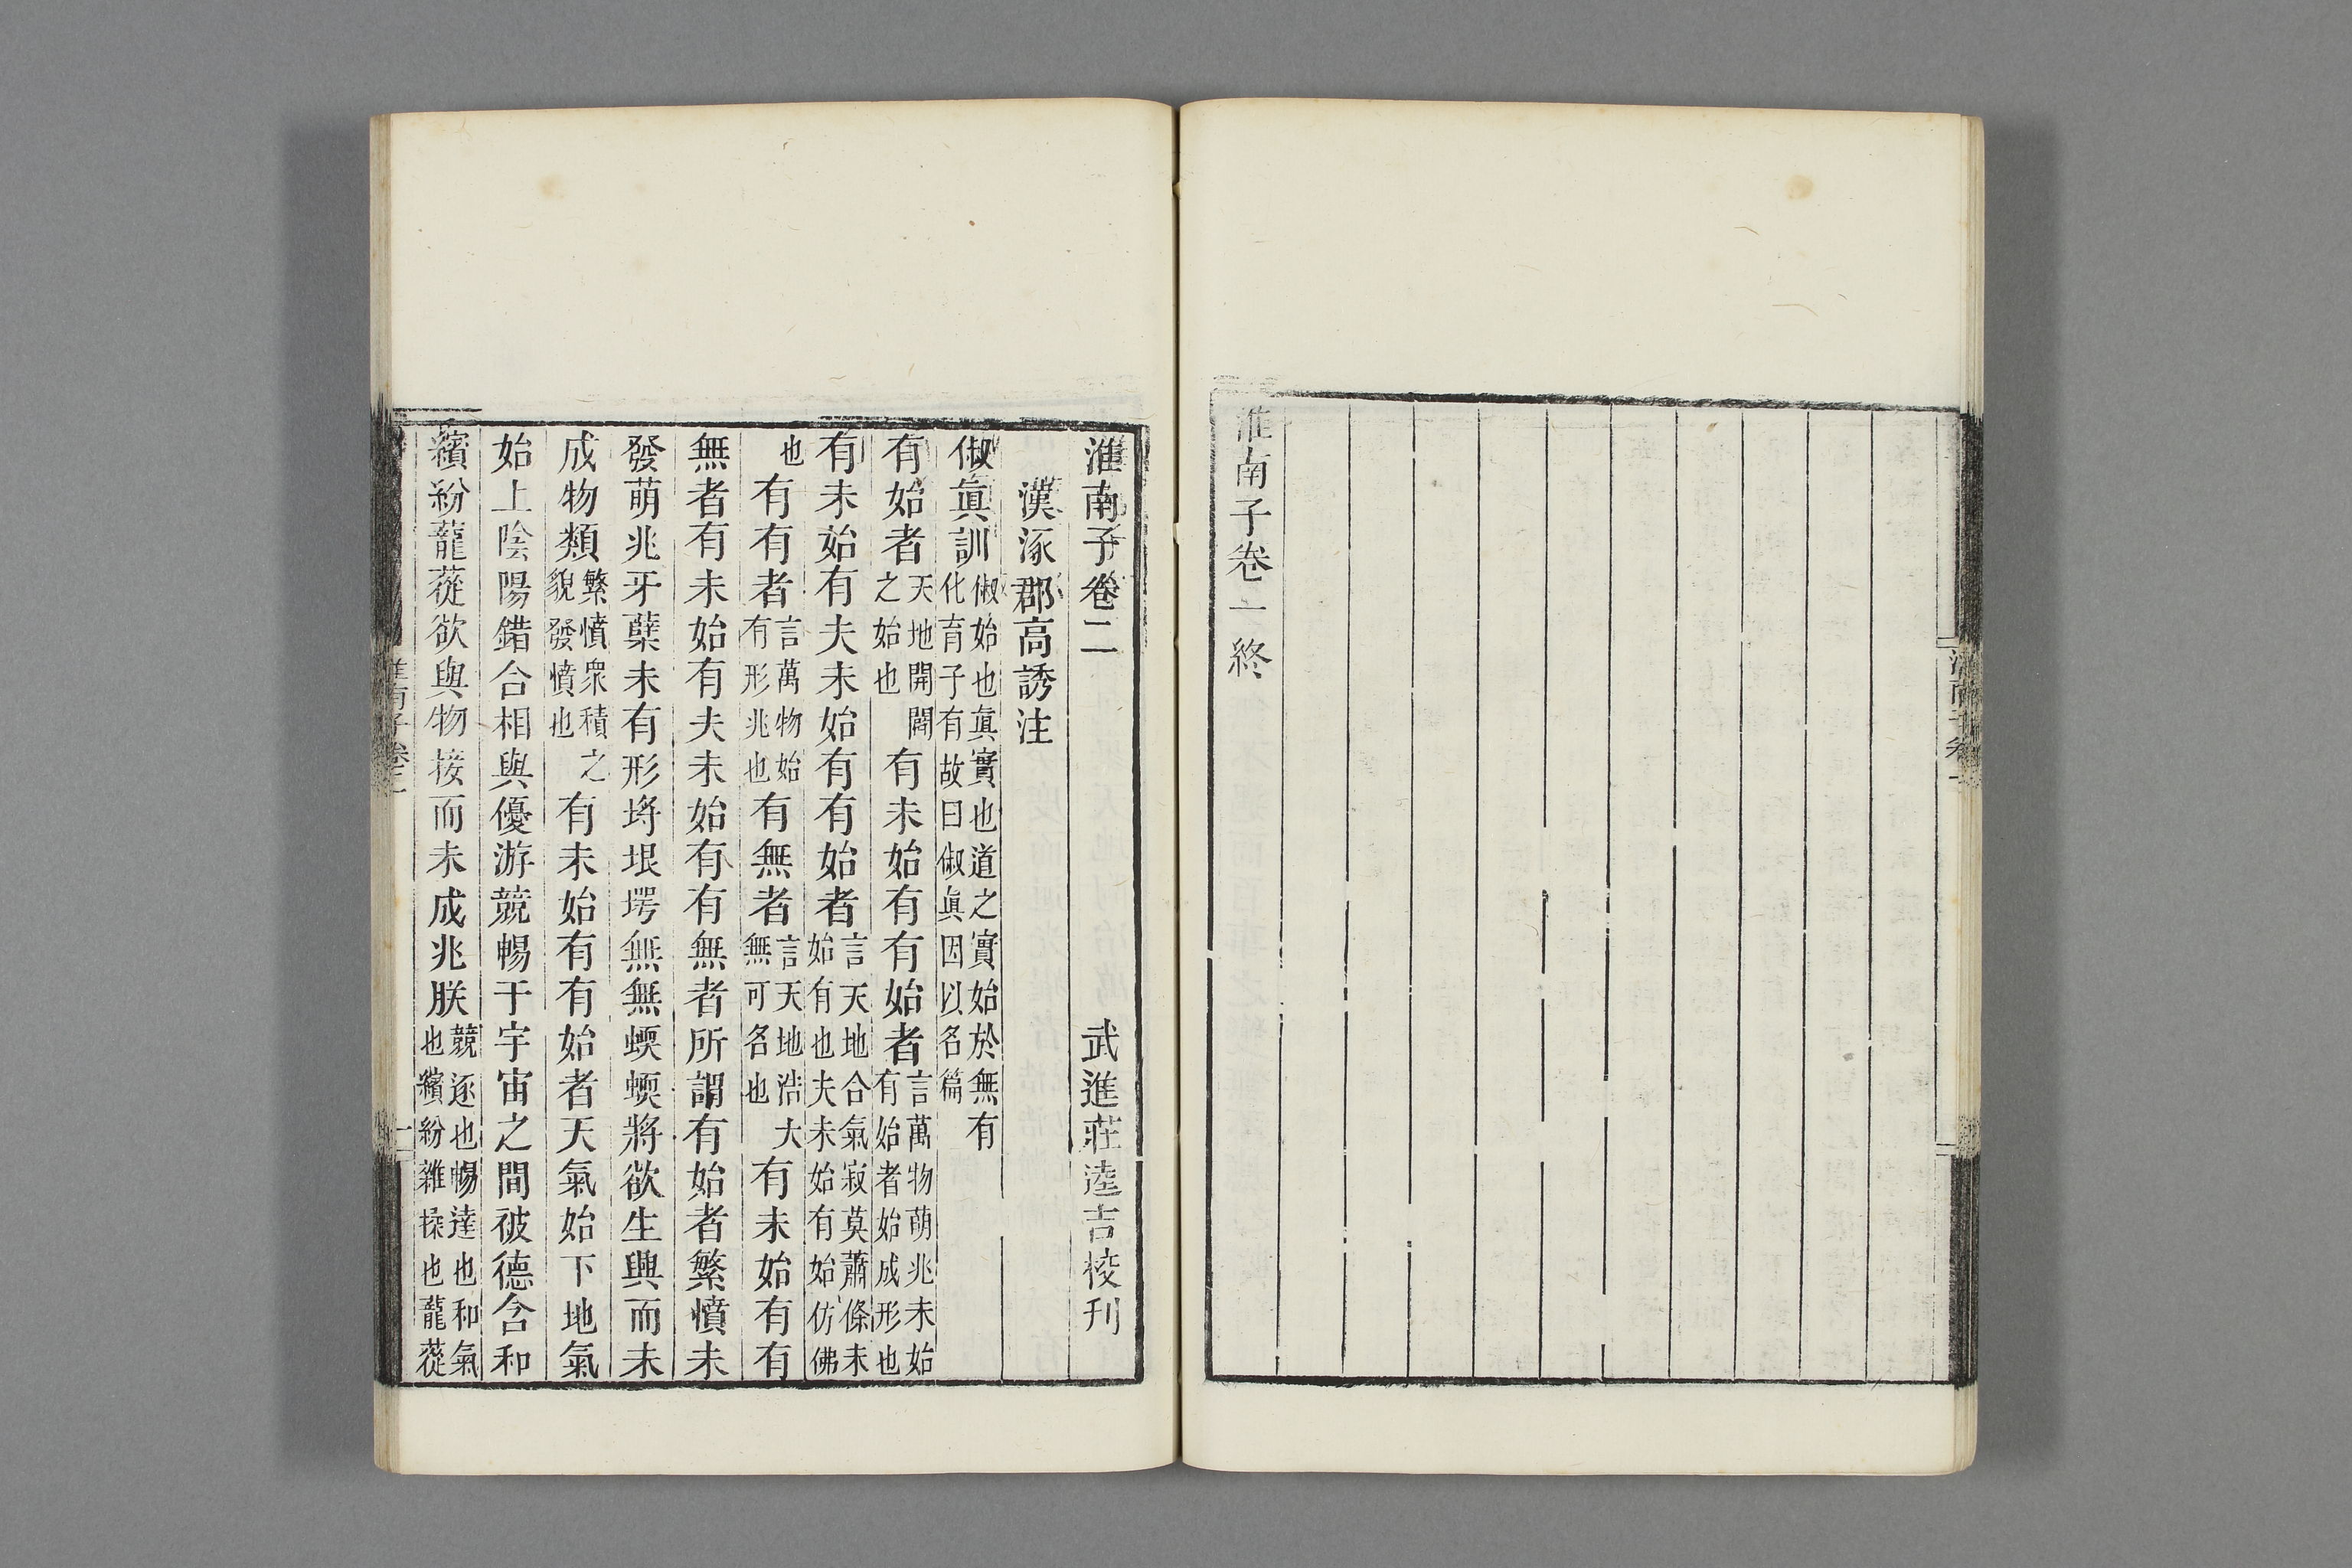 淮南子卷一
淮南子卷一終
淮南子卷二　武進莊逵吉校刊
漢涿郡高誘注
俶真訓俶始也真實也道之實始於無有化育子有故曰俶真因以名篇
有始者天地開闢之始也有未始有有始者言萬物萌兆未始有始者始成形也
有未始有夫未始有有始者言天地合氣寂莫蕭條未始有也夫未始有始仿佛
也有有者言萬物始有形兆也有無者言天地浩大無可名也有未始有有
無者有未始有夫未始有有無者所謂有始者繁憤未
發萌兆牙櫱未有形埒垠堮無無蝡蝡將欲生興而未
成物類繁憤衆積之貌發憤也有未始有有始者天氣始下地氣
始上陰陽錯合相與優游競暢于宇宙之間被德含和
繽紛蘢蓯欲與物接而未成兆朕競逐也暢達也和氣也繽紛雜揉也蘢蓯
淮南子卷二